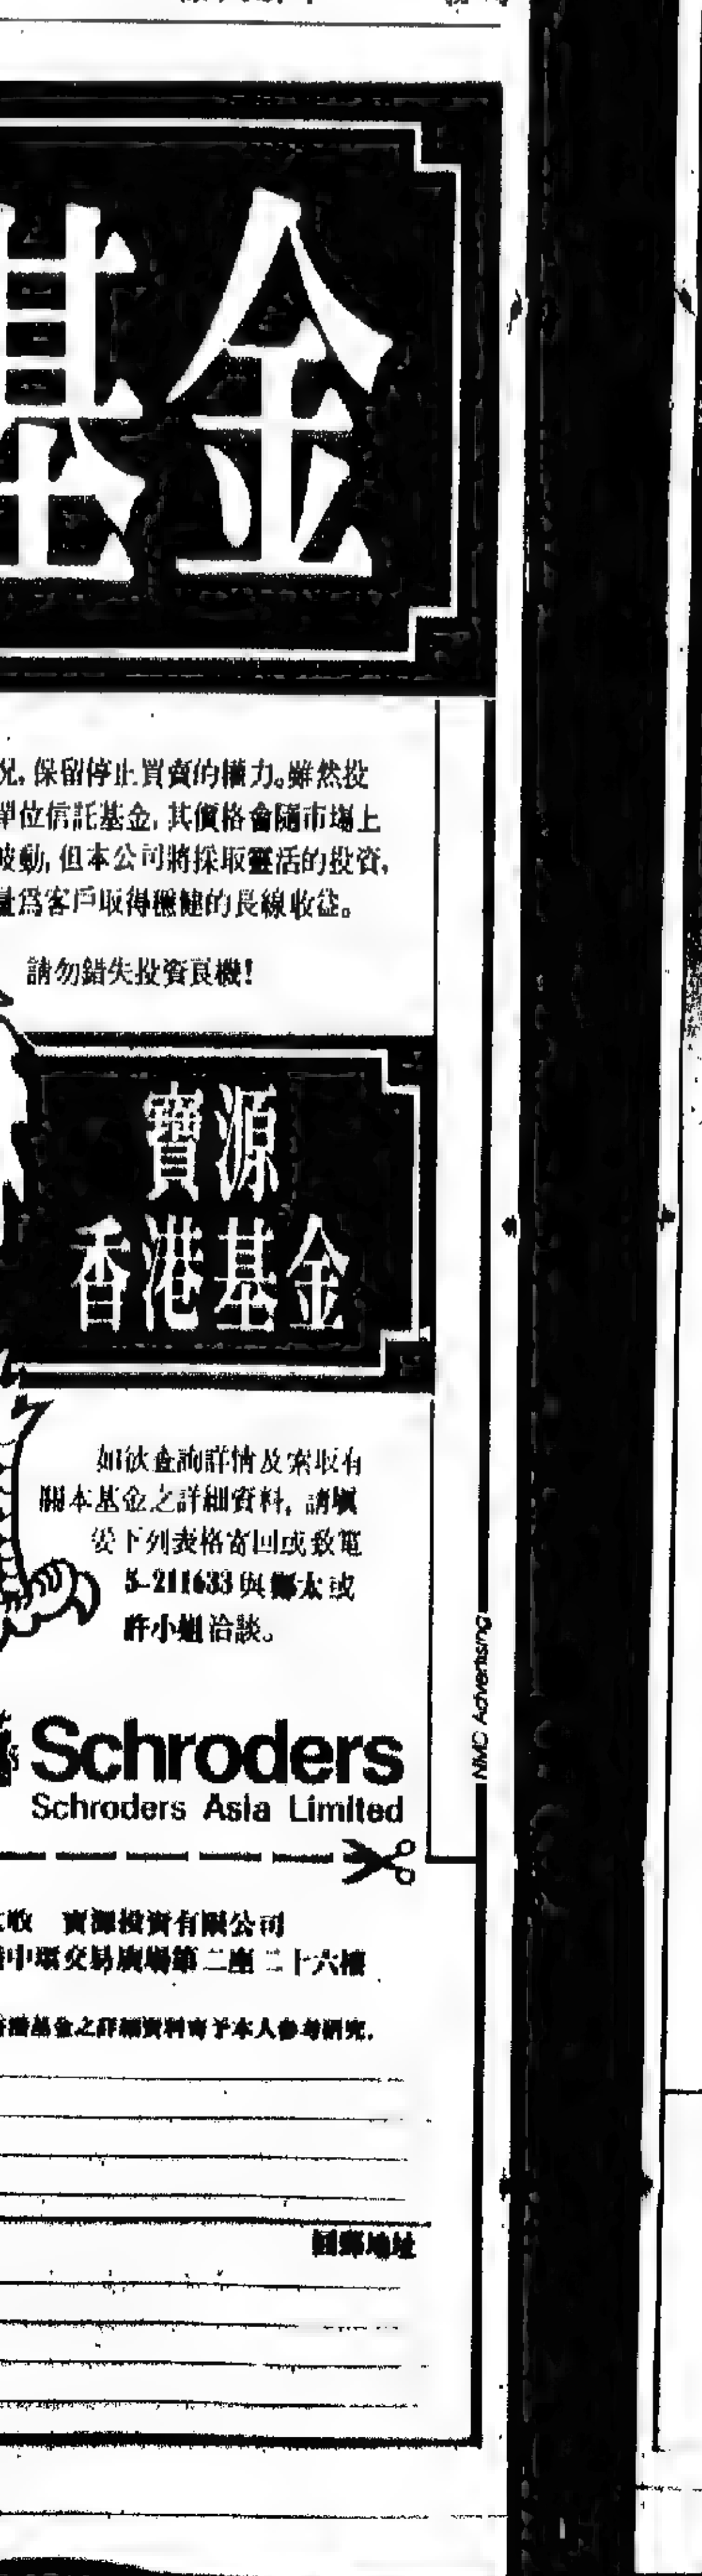 基金
況,保留停止買賣的權力。雖然投
單位信託基金,其價格會隨市場上
波動,但本公司將採取靈活的投資,
量爲客戶取得穩健的長線收益。
請勿錯失投資良機!
寶源
香港基金
如欲查詢詳情及索取有
關本基金之詳細資料,請填
妥下列表格寄回或致電
5-211633與鄭太或
許小姐洽談。
NMC Advertising
Schroders
Schroders Asia Limited
收 寶源投資有限公司
中環交易廣場第二座二十六樓
香港基金之詳細資料寄予本人參考研究.
回郵地址